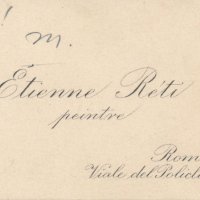 ! m.
Étienne Réti
peintre
Rom
Viale del Policl